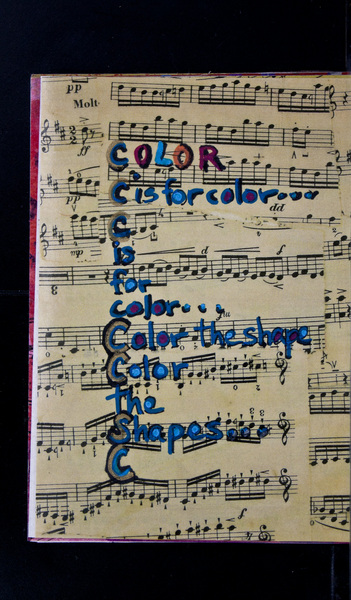 pp
Molt
ff
COLOR
C is for color...
pp
dd
C
mp
d
f
is
for
color...
Color the shape
Color
the
Shapes...
C
f